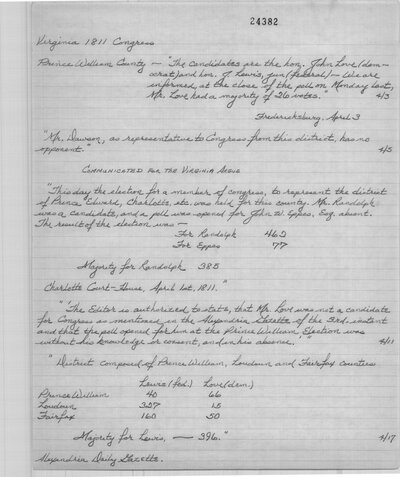 24382
Virginia 1811 Congress
Prince William County — "The candidates are the hon. John Love (dem-
ocrat) and hon. J. Lewis, jun (federal) — We are
informed, at the close of the poll on Monday last,
Mr. Love had a majority of 26 votes." 4/3
Fredericksburg, April 3
"Mr. Dawson, as representative to Congress from this district, has no
opponent." 4/5
COMMUNICATED FOR THE VIRGINIA ARGUS
"This day the election for a member of congress, to represent the district
of Prince Edward, Charlotte, etc. was held for this county. Mr. Randolph
was a candidate, and a poll was opened for John W. Eppes, Esq. absent.
The result of the election was —
For Randolph 462
For Eppes 77
Majority for Randolph 385
Charlotte Court-House, April 1st, 1811."
"The Editor is authorized to state, that Mr. Love was not a candidate
for Congress as mentioned in the Alexandria Gazette of the 3rd. instant
and that the poll opened for him at the Prince William Election was
without his knowledge or consent, and in his absence.'" 4/11
"District composed of Prince William, Loudoun and Fairfax counties
Lewis (fed.) Love (dem.)
Prince William 40 66
Loudoun 327 15
Fairfax 160 50
Majority for Lewis, — 396." 4/17
Alexandria Daily Gazette.